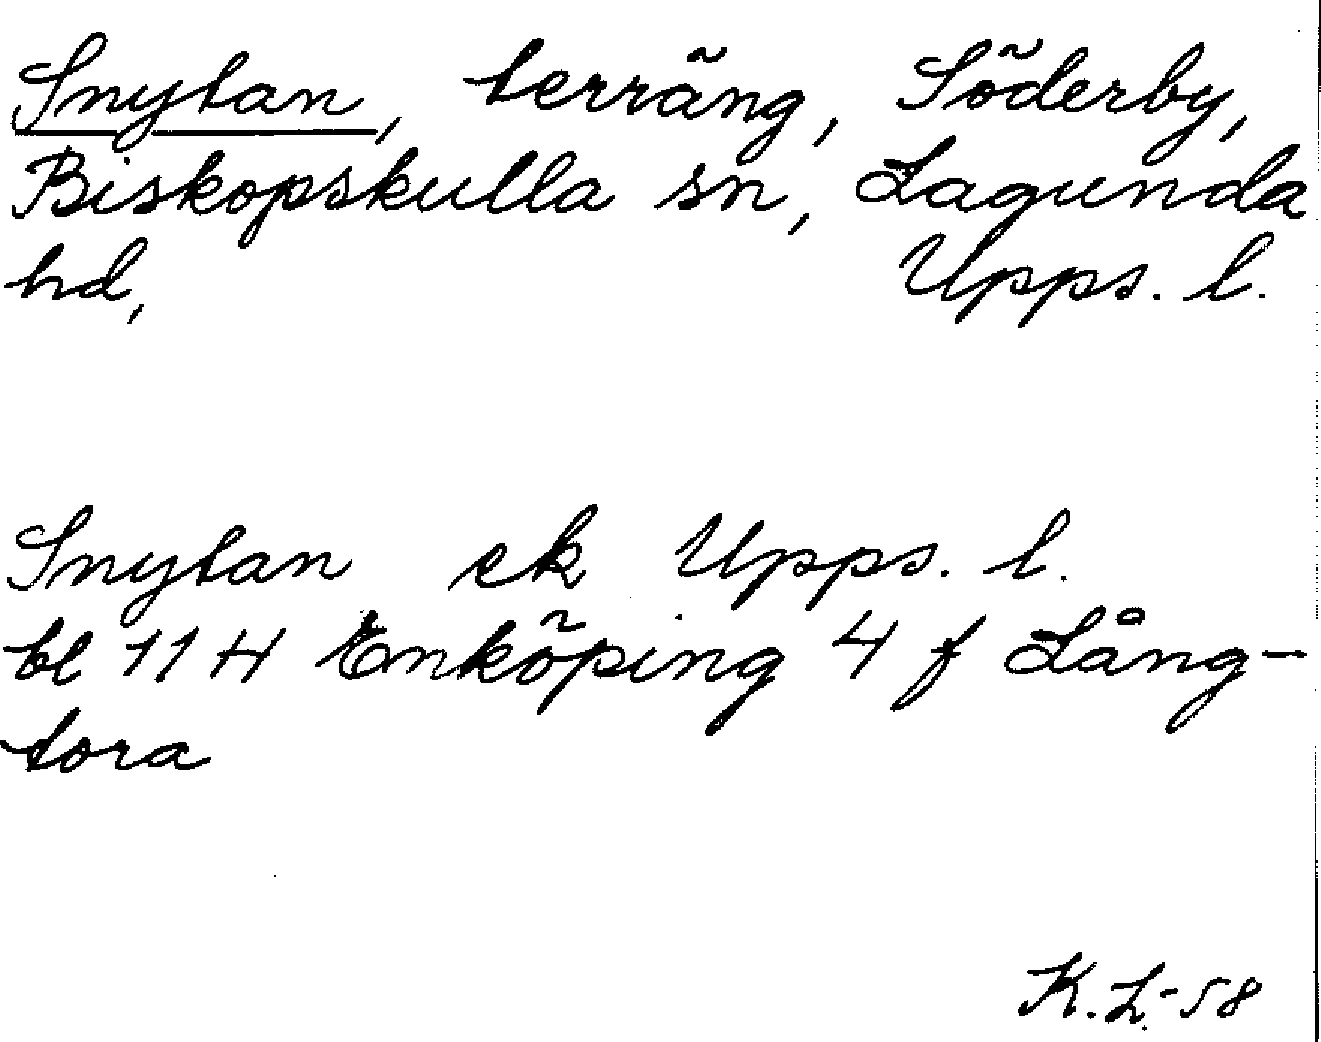 Snytan, terräng, Söderby,
Biskopskulla sn, Lagunda
hd, Upps. l.
Snytan ek Upps. l.
bl 11 H Enköping 4 f Lång-
tora
K.L.-58